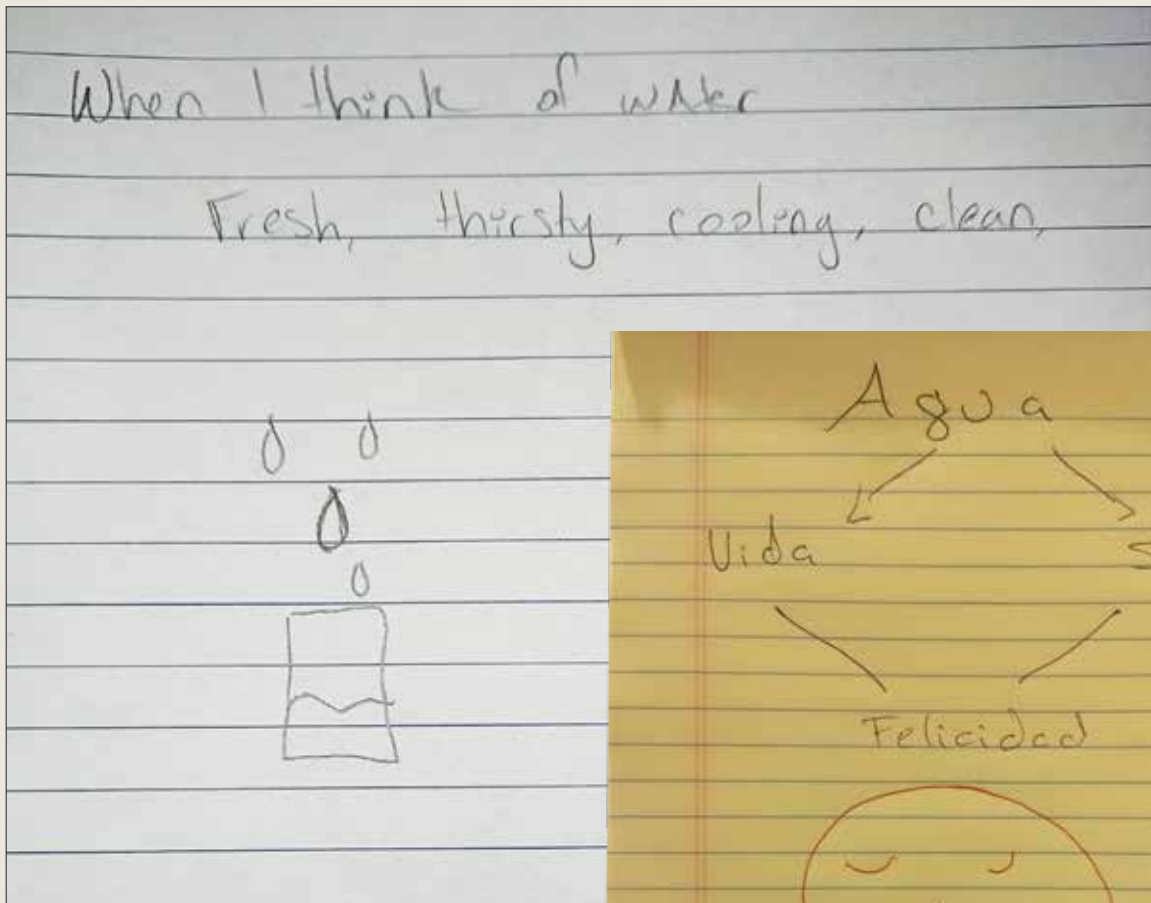 When I think of water
Fresh, thirsty, cooling, clean,
Agua
Vida
Felicidad